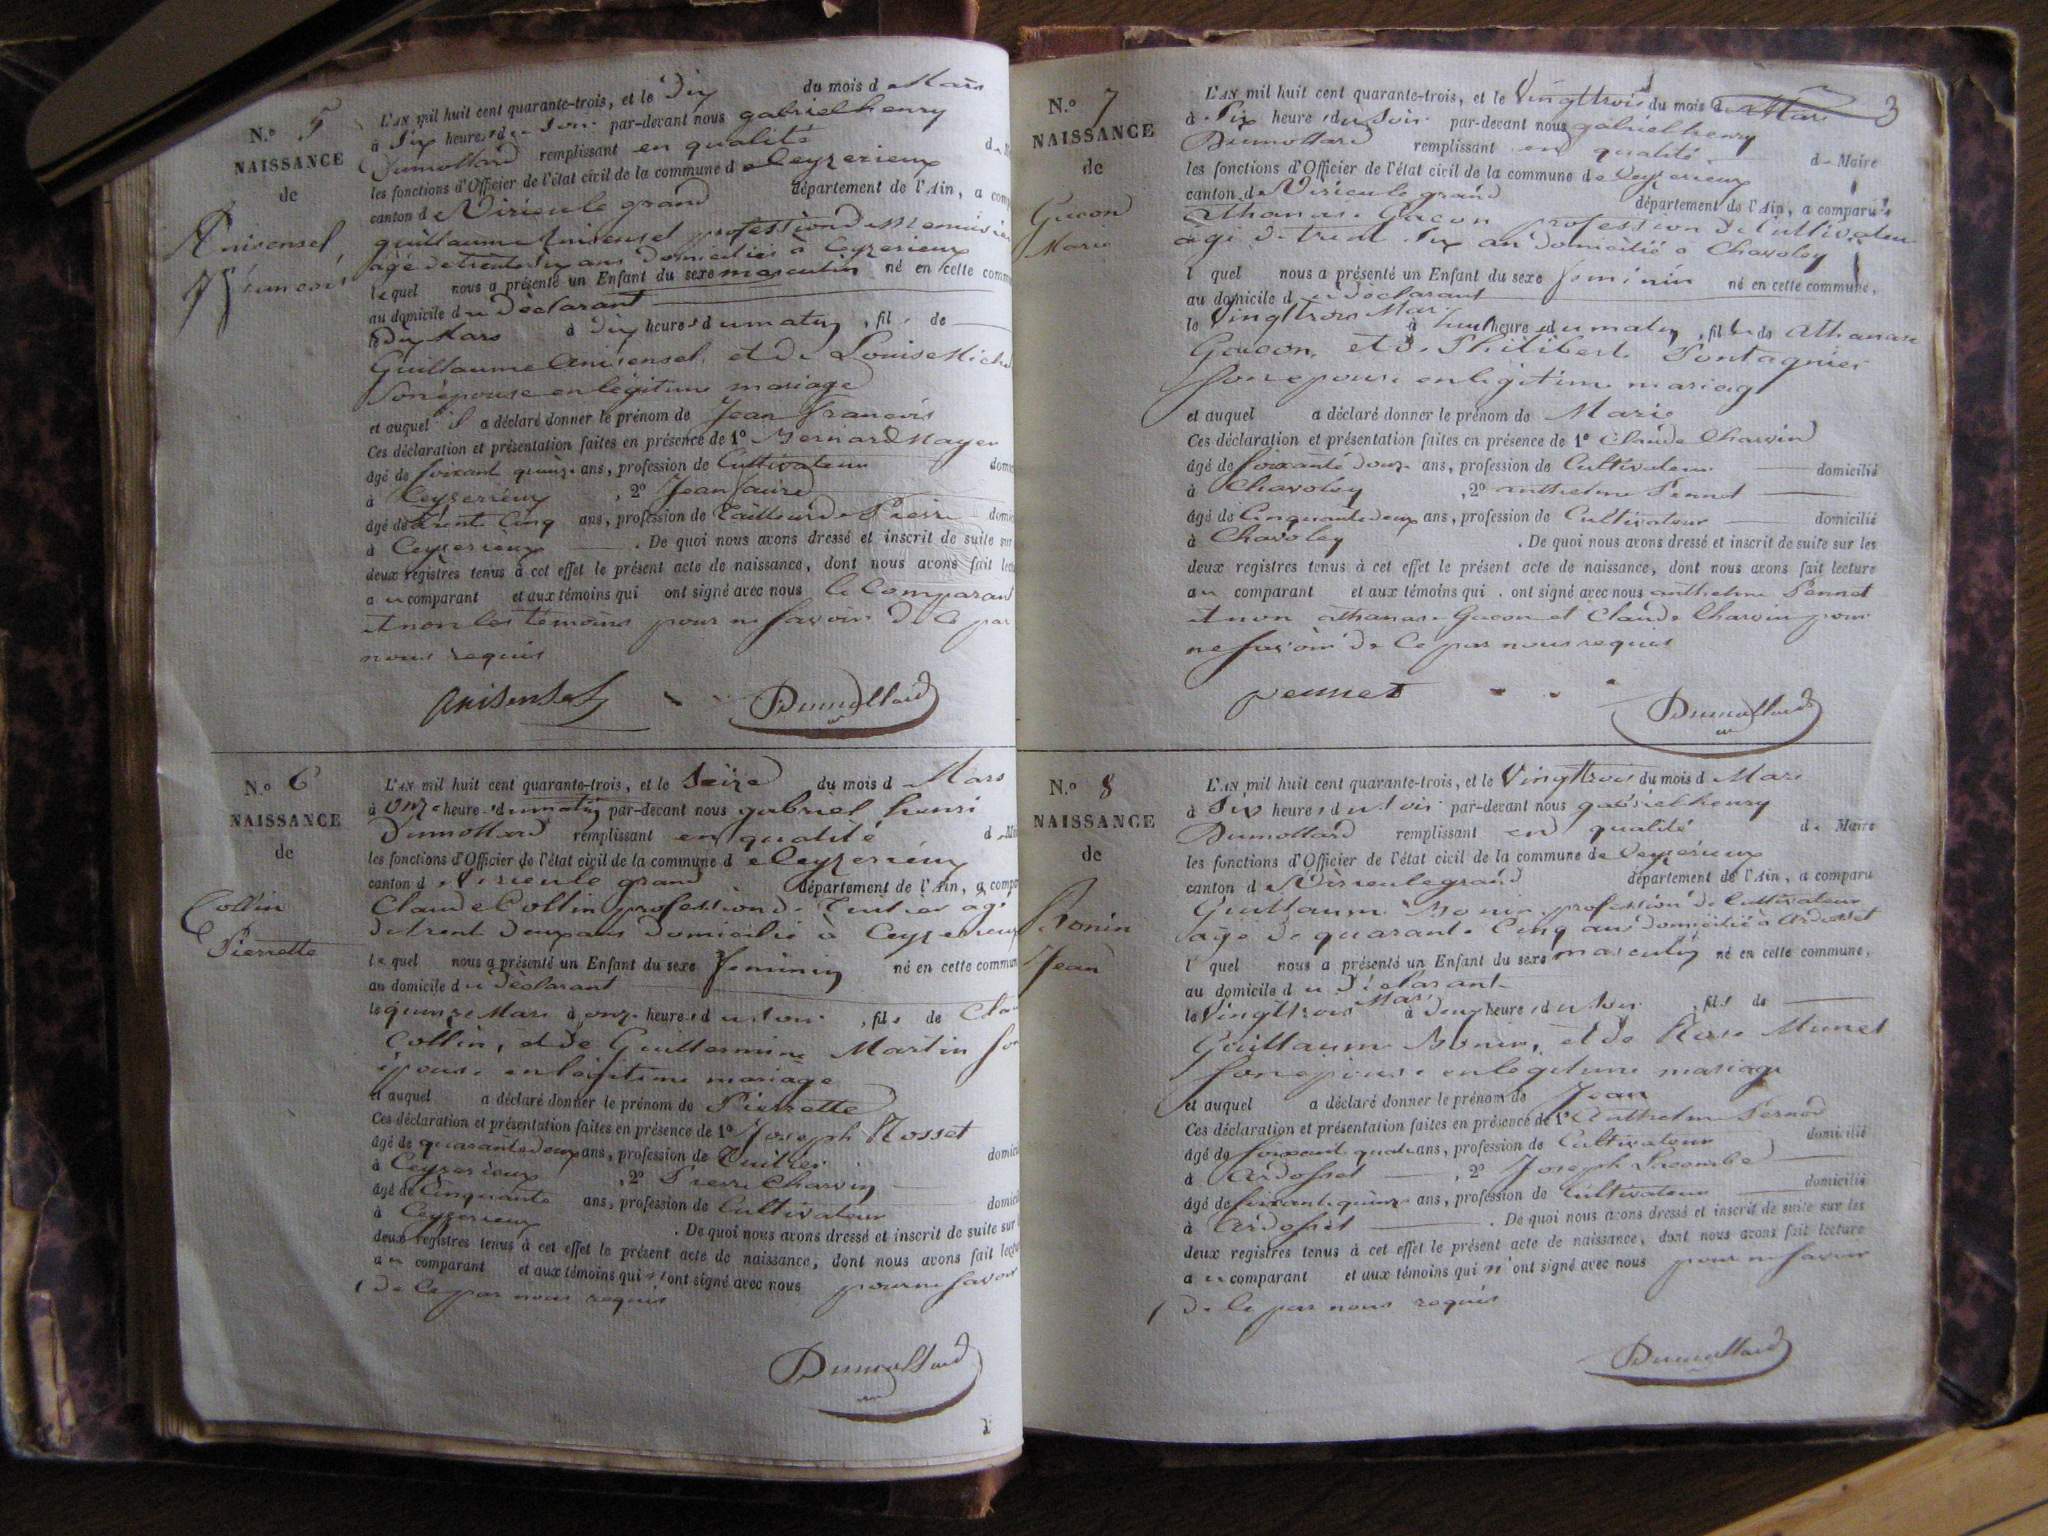 N.º 5
NAISSANCE
de
Anisensel
Jn francois
L'AN mil huit cent quarante-trois, et le Dix du mois d Mars
à Six heures du Soir par-devant nous gabriel henry
Dumollard remplissant en qualité de
les fonctions d'Officier de l'état civil de la commune de Ceyzerieux
canton de Virieu le grand département de l'Ain, a comp
guillaume Anisensel profession de Menuisier
âgé de trente Six ans domicilié à Ceyzerieux
lequel nous a présenté un Enfant du sexe masculin né en cette comm
au domicile du Déclarant
le dix Mars à Dix heures du matin, fils de
Guillaume Anisensel et de Louise Miche
Son épouse en légitime mariage
et auquel il a déclaré donner le prénom de Jean francois
Ces déclaration et présentation faites en présence de 1º Bernard Mayer
âgé de soixant quinze ans, profession de Cultivateur domi
à Ceyzerieux, 2º Jean faure
âgé de trente Cinq ans, profession de Tailleur de Pierre domi
à Ceyzerieux. De quoi nous avons dressé et inscrit de suite sur
deux registres tenus à cet effet le présent acte de naissance, dont nous avons fait lect
au comparant et aux témoins qui ont signé avec nous le Comparant
et non les témoins pour ne savoir de ce par
nous requis
anisensel Dumollard
N.º 6
NAISSANCE
de
Collin
Pierrette
L'AN mil huit cent quarante-trois, et le Seize du mois d Mars
à onze heures du matin par-devant nous gabriel henri
Dumollard remplissant en qualité de
les fonctions d'Officier de l'état civil de la commune de Ceyzerieux
canton d Virieu le grand département de l'Ain, a compa
Claude Collin profession de Tuilier agé
de trent deux ans domicilié à Ceyzerieux
lequel nous a présenté un Enfant du sexe feminin né en cette commun
au domicile du déclarant
le quinze Mars à onze heures du soir, fils de Cla
Collin, et de Guillermine Martin son
épouse en légitime mariage
et auquel a déclaré donner le prénom de Pierrette
Ces déclaration et présentation faites en présence de 1º Joseph Rosset
âgé de quarante deux ans, profession de Tuilier domici
à Ceyzerieux, 2º Pierre Charvin
âgé de Cinquante ans, profession de Cultivateur domici
à Ceyzerieux. De quoi nous avons dressé et inscrit de suite sur
deux registres tenus à cet effet le présent acte de naissance, dont nous avons fait lectu
au comparant et aux témoins qui n'ont signé avec nous pour ne savoir
de ce par nous requis
Dumollard
3
N.º 7
NAISSANCE
de
Gacon
Marie
L'AN mil huit cent quarante-trois, et le Vingt trois du mois de Mars
à Six heures du Soir par-devant nous gabriel henry
Dumollard remplissant en qualité de Maire
les fonctions d'Officier de l'état civil de la commune de Ceyzerieux
canton de Virieu le grand département de l'Ain, a comparu
Athanase Gacon profession de Cultivateur
âgé de trent Six ans domicilié à Chavoley
l quel nous a présenté un Enfant du sexe feminin né en cette commune,
au domicile du déclarant
le Vingt trois Mars à huit heures du matin, fille de Athanase
Gacon et de Philiberte Pontagnier
son epouse en légitime mariag
et auquel a déclaré donner le prénom de Marie
Ces déclaration et présentation faites en présence de 1º Claude Charvin
âgé de soixante douze ans, profession de Cultivateur domicilié
à Chavoley, 2º anthelme Pennet
âgé de Cinquante deux ans, profession de Cultivateur domicilié
à Chavoley. De quoi nous avons dressé et inscrit de suite sur les
deux registres tenus à cet effet le présent acte de naissance, dont nous avons fait lecture
au comparant et aux témoins qui ont signé avec nous anthelme Pennet
et non athanase Gacon et Claude Charvin pour
ne savoir de ce par nous requis
pennet Dumollard
N.º 8
NAISSANCE
de
Bonin
Jean
L'AN mil huit cent quarante-trois, et le Vingt trois du mois d Mars
à Six heures du soir par-devant nous gabriel henry
Dumollard remplissant en qualité de Maire
les fonctions d'Officier de l'état civil de la commune de Ceyzerieux
canton de Virieu le grand département de l'Ain, a comparu
Guillaume Bonin profession de Cultivateur
âgé de quarante Cinq ans domicilié à Ardosset
l quel nous a présenté un Enfant du sexe masculin né en cette commune,
au domicile du déclarant
le Vingt trois Mars à Deux heures du soir, fils de
Guillaume Bonin, et de Rose Munet
son epouse en légitime mariage
et auquel a déclaré donner le prénom de Jean
Ces déclaration et présentation faites en présence de 1º Anthelme Pernod
âgé de soixant quatre ans, profession de Cultivateur domicilié
à Ardosset, 2º Joseph Lacombe
âgé de soixant quinze ans, profession de Cultivateur domicilié
à Ardosset. De quoi nous avons dressé et inscrit de suite sur les
deux registres tenus à cet effet le présent acte de naissance, dont nous avons fait lecture
au comparant et aux témoins qui n'ont signé avec nous pour ne savoir
de ce par nous requis
Dumollard